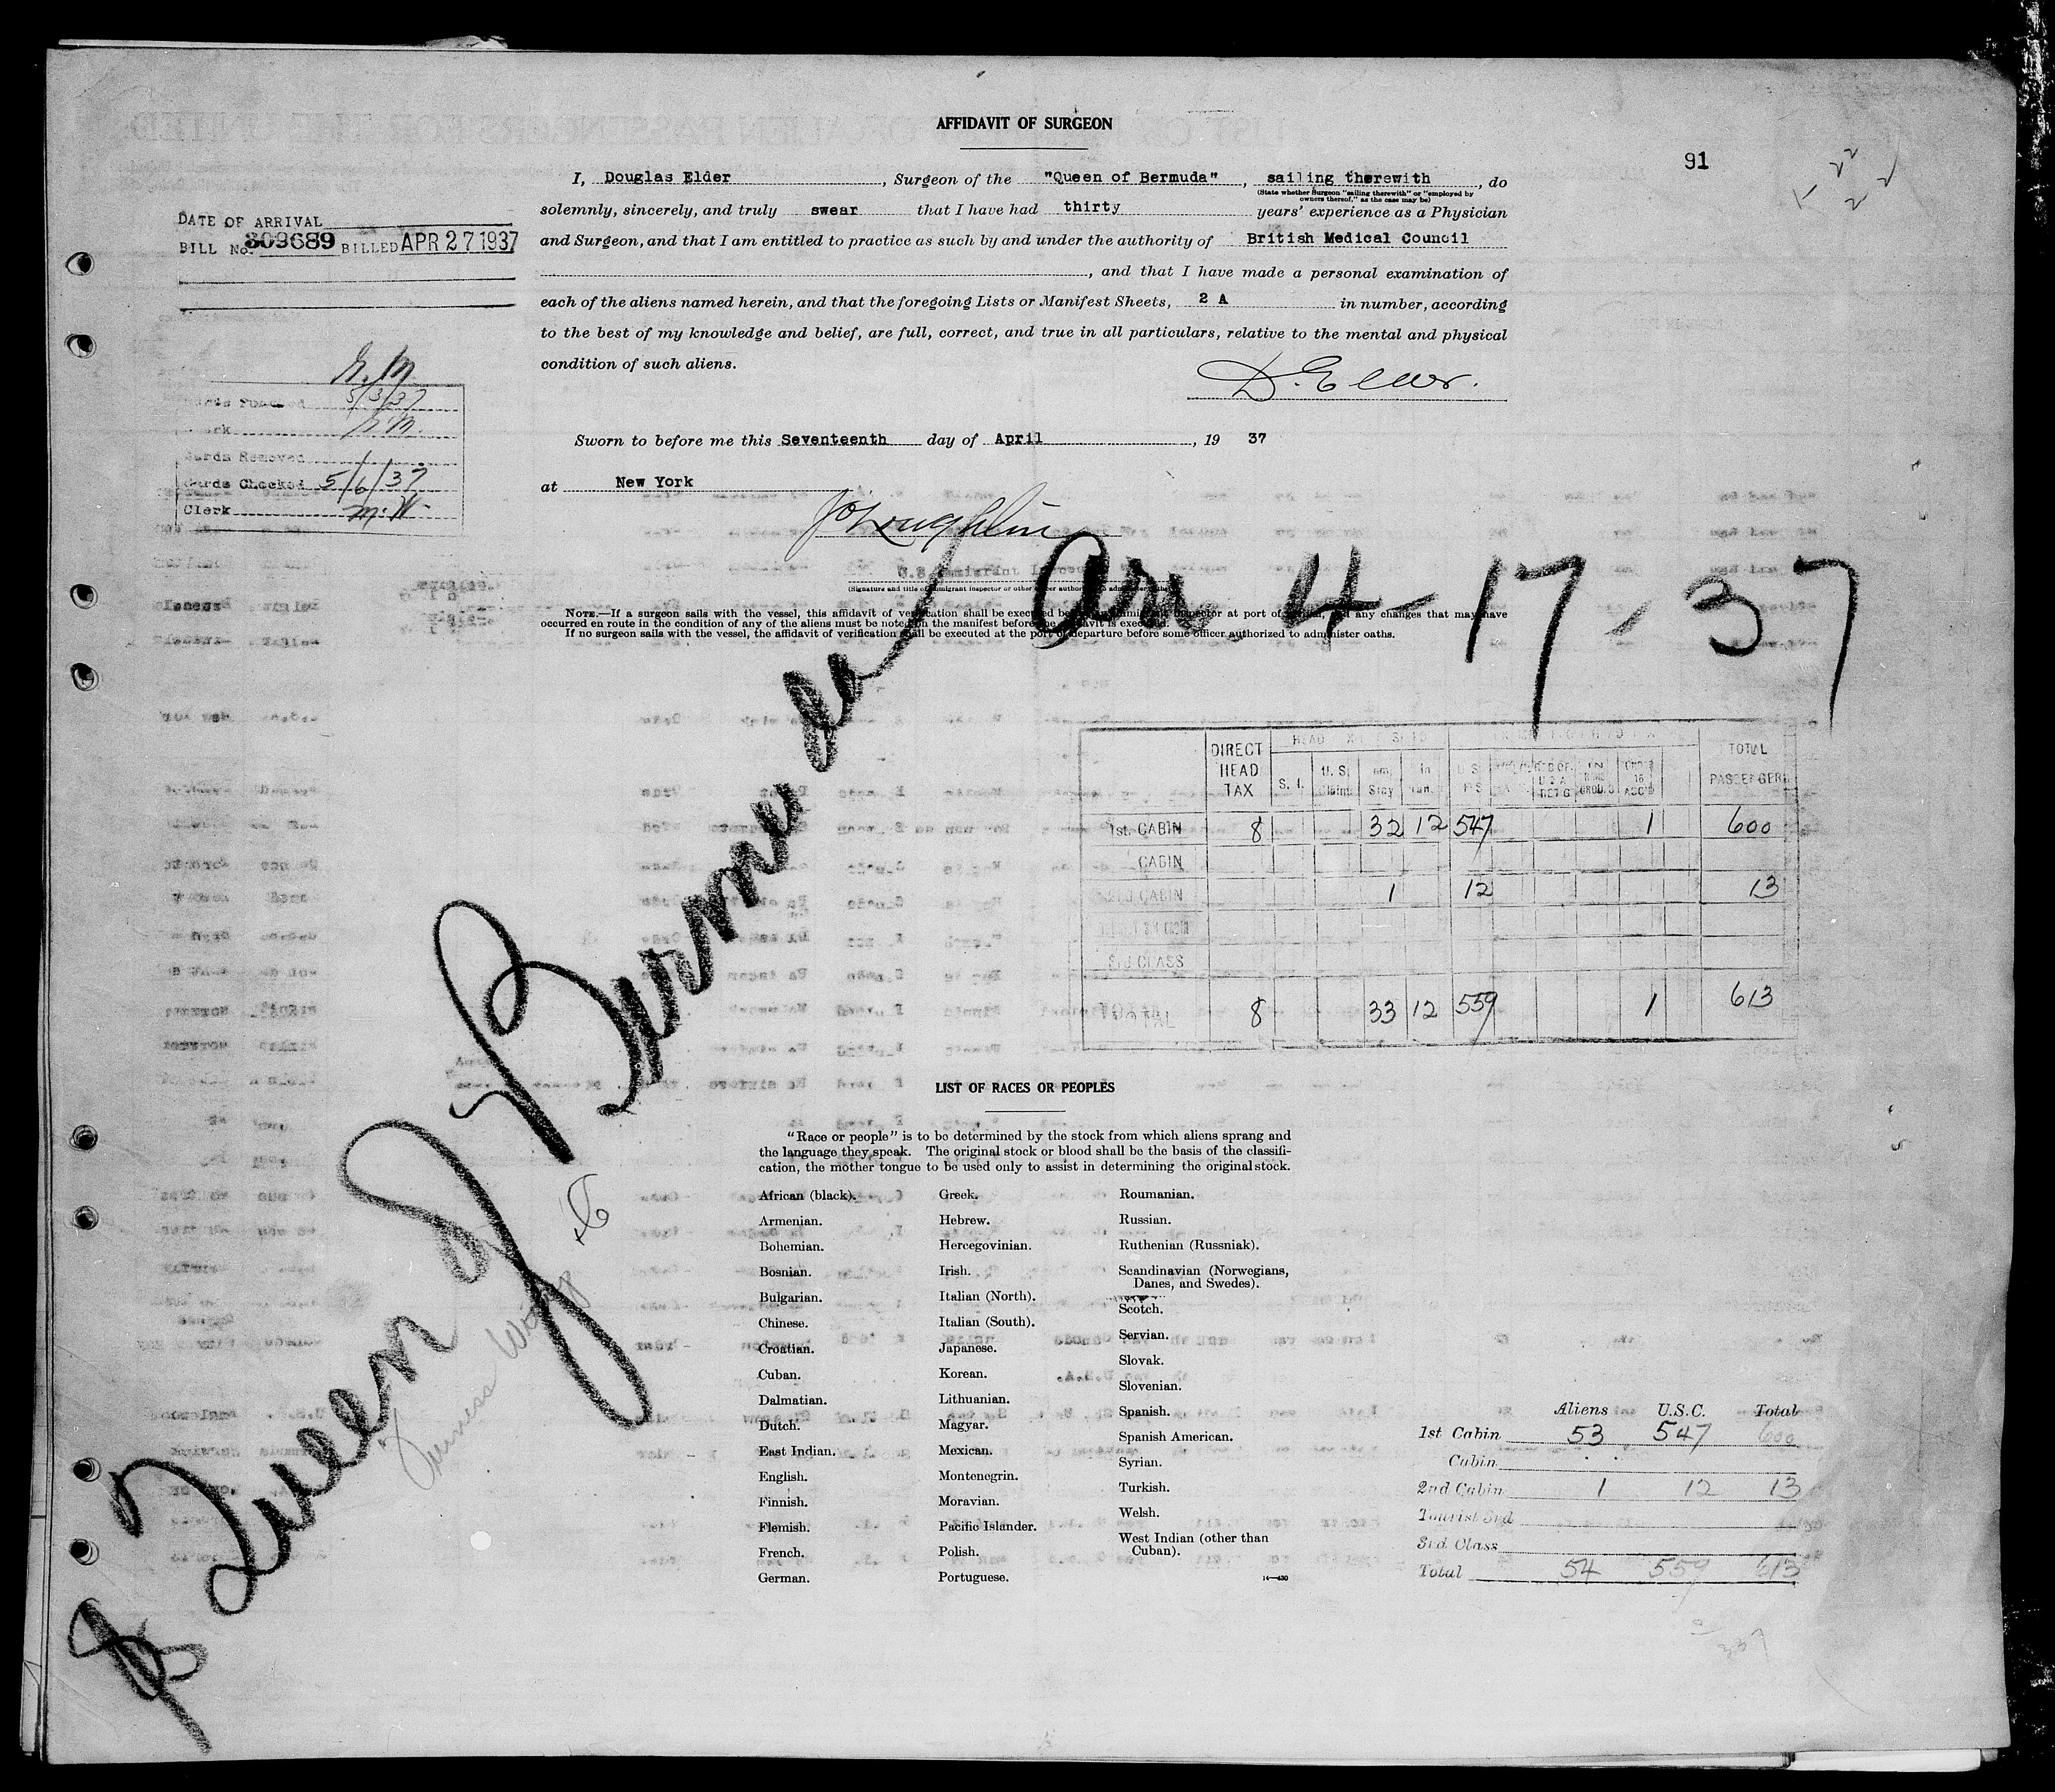 AFFIDAVIT OF SURGEON
91
I, Douglas Elder, Surgeon of the "Queen of Bermuda", sailing therewith, do
(State whether Surgeon "sailing therewith" or "employed by
owners thereof," as the case may be)
solemnly, sincerely, and truly swear that I have had thirty years' experience as a Physician
and Surgeon, and that I am entitled to practice as such by and under the authority of British Medical Council
, and that I have made a personal examination of
each of the aliens named herein, and that the foregoing Lists or Manifest Sheets, 2 A in number, according
to the best of my knowledge and belief, are full, correct, and true in all particulars, relative to the mental and physical
condition of such aliens.
D. Elder.
Sworn to before me this Seventeenth day of April, 19 37
at New York
DATE OF ARRIVAL
BILL No. 309689 BILLED APR 27 1937
5/3/37
Cards Removed
Cards Checked 5/6/37
Clerk M.W.
Arr. 4-17-37
(Signature and title of immigrant inspector or other officer authorized to administer oaths)
NOTE.—If a surgeon sails with the vessel, this affidavit of verification shall be executed before an immigrant inspector at port of arrival, and any changes that may have
occurred en route in the condition of any of the aliens must be noted on the manifest before affidavit is executed.
If no surgeon sails with the vessel, the affidavit of verification shall be executed at the port of departure before some officer authorized to administer oaths.
SS Queen of Bermuda
Furness Withy
DIRECT HEAD TAX
S. I.
U. S. Claim
Stay
In Tran.
TOTAL PASSENGERS
1st. CABIN 8 32 12 547 1 600
CABIN
2nd CABIN 1 12 13
3rd CLASS
TOTAL 8 33 12 559 1 613
LIST OF RACES OR PEOPLES
"Race or people" is to be determined by the stock from which aliens sprang and
the language they speak. The original stock or blood shall be the basis of the classifi-
cation, the mother tongue to be used only to assist in determining the original stock.
African (black).
Armenian.
Bohemian.
Bosnian.
Bulgarian.
Chinese.
Croatian.
Cuban.
Dalmatian.
Dutch.
East Indian.
English.
Finnish.
Flemish.
French.
German.
Greek.
Hebrew.
Hercegovinian.
Irish.
Italian (North).
Italian (South).
Japanese.
Korean.
Lithuanian.
Magyar.
Mexican.
Montenegrin.
Moravian.
Pacific Islander.
Polish.
Portuguese.
Roumanian.
Russian.
Ruthenian (Russniak).
Scandinavian (Norwegians,
Danes, and Swedes).
Scotch.
Servian.
Slovak.
Slovenian.
Spanish.
Spanish American.
Syrian.
Turkish.
Welsh.
West Indian (other than
Cuban).
14—430
Aliens U.S.C. Total
1st Cabin 53 547 600
Cabin
2nd Cabin 1 12 13
Tourist 3rd
3rd Class
Total 54 559 613